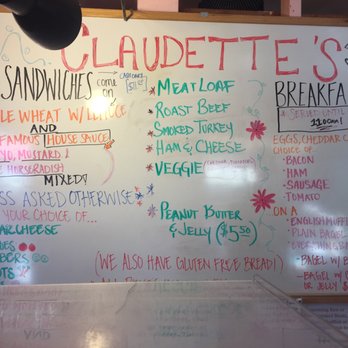 CLAUDETTE'S
SANDWICHES come on
LE WHEAT W/ LETTUCE
AND
FAMOUS HOUSE SAUCE
YO, MUSTARD &
HORSERADISH
MIXED!
SS ASKED OTHERWISE
YOUR CHOICE OF...
AR CHEESE
MEATLOAF
ROAST BEEF
SMOKED TURKEY
HAM & CHEESE
VEGGIE
PEANUT BUTTER
& JELLY ($5.50)
(WE ALSO HAVE GLUTEN FREE BREAD!)
BREAKFA
SERVED UNTIL
11:00AM!
EGGS, CHEDDAR C
CHOICE OF
- BACON
- HAM
- SAUSAGE
- TOMATO
ON A
- ENGLISH MUFFI
- PLAIN BAGEL
- EVERYTHING BA
- BAGEL W/
- BAGEL W/
OR JELLY $